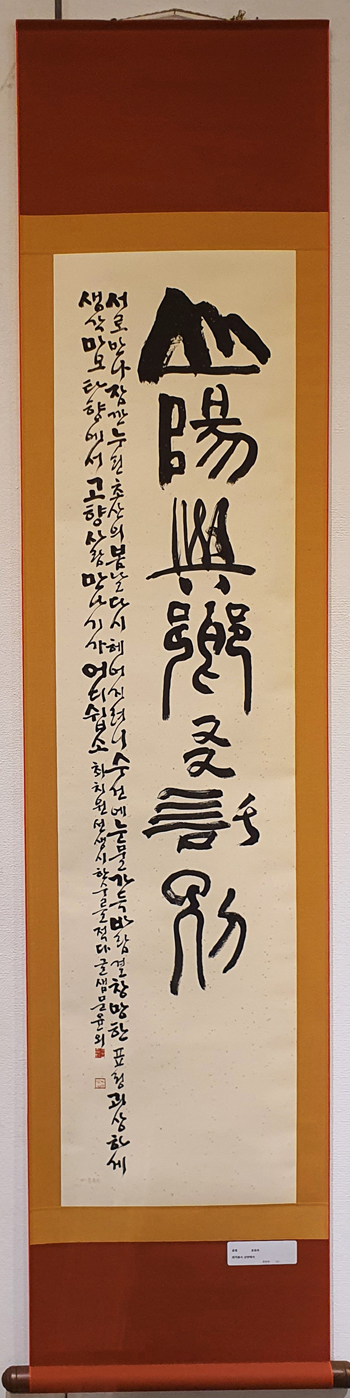 山陽與鄕友話別
서로만나 잠깐 누린 초산의 봄날 다시 헤어지려니 수건에 눈물가득 바람결 창망한 표정 괴상하게
생각마오 타향에서 고향사람 만나기가 어디쉽소 최치원선생시 한수를 적다 글샘 문윤외